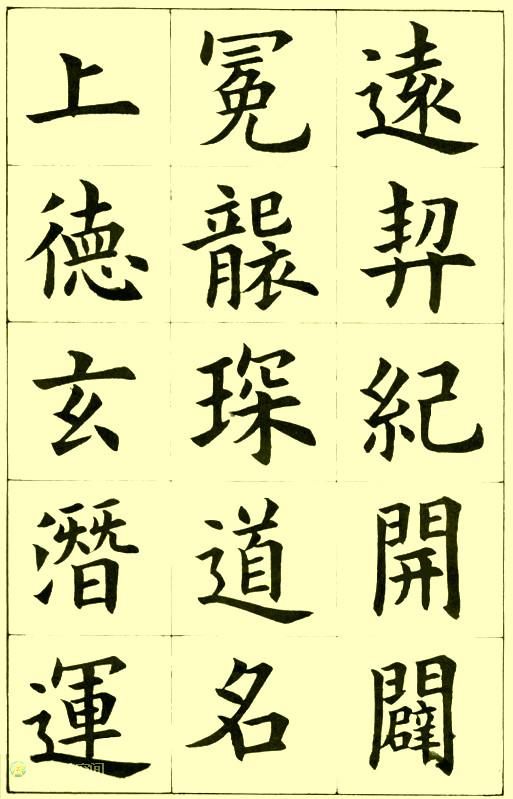 遠契紀開闢
冕襲琛道名
上德玄潛運